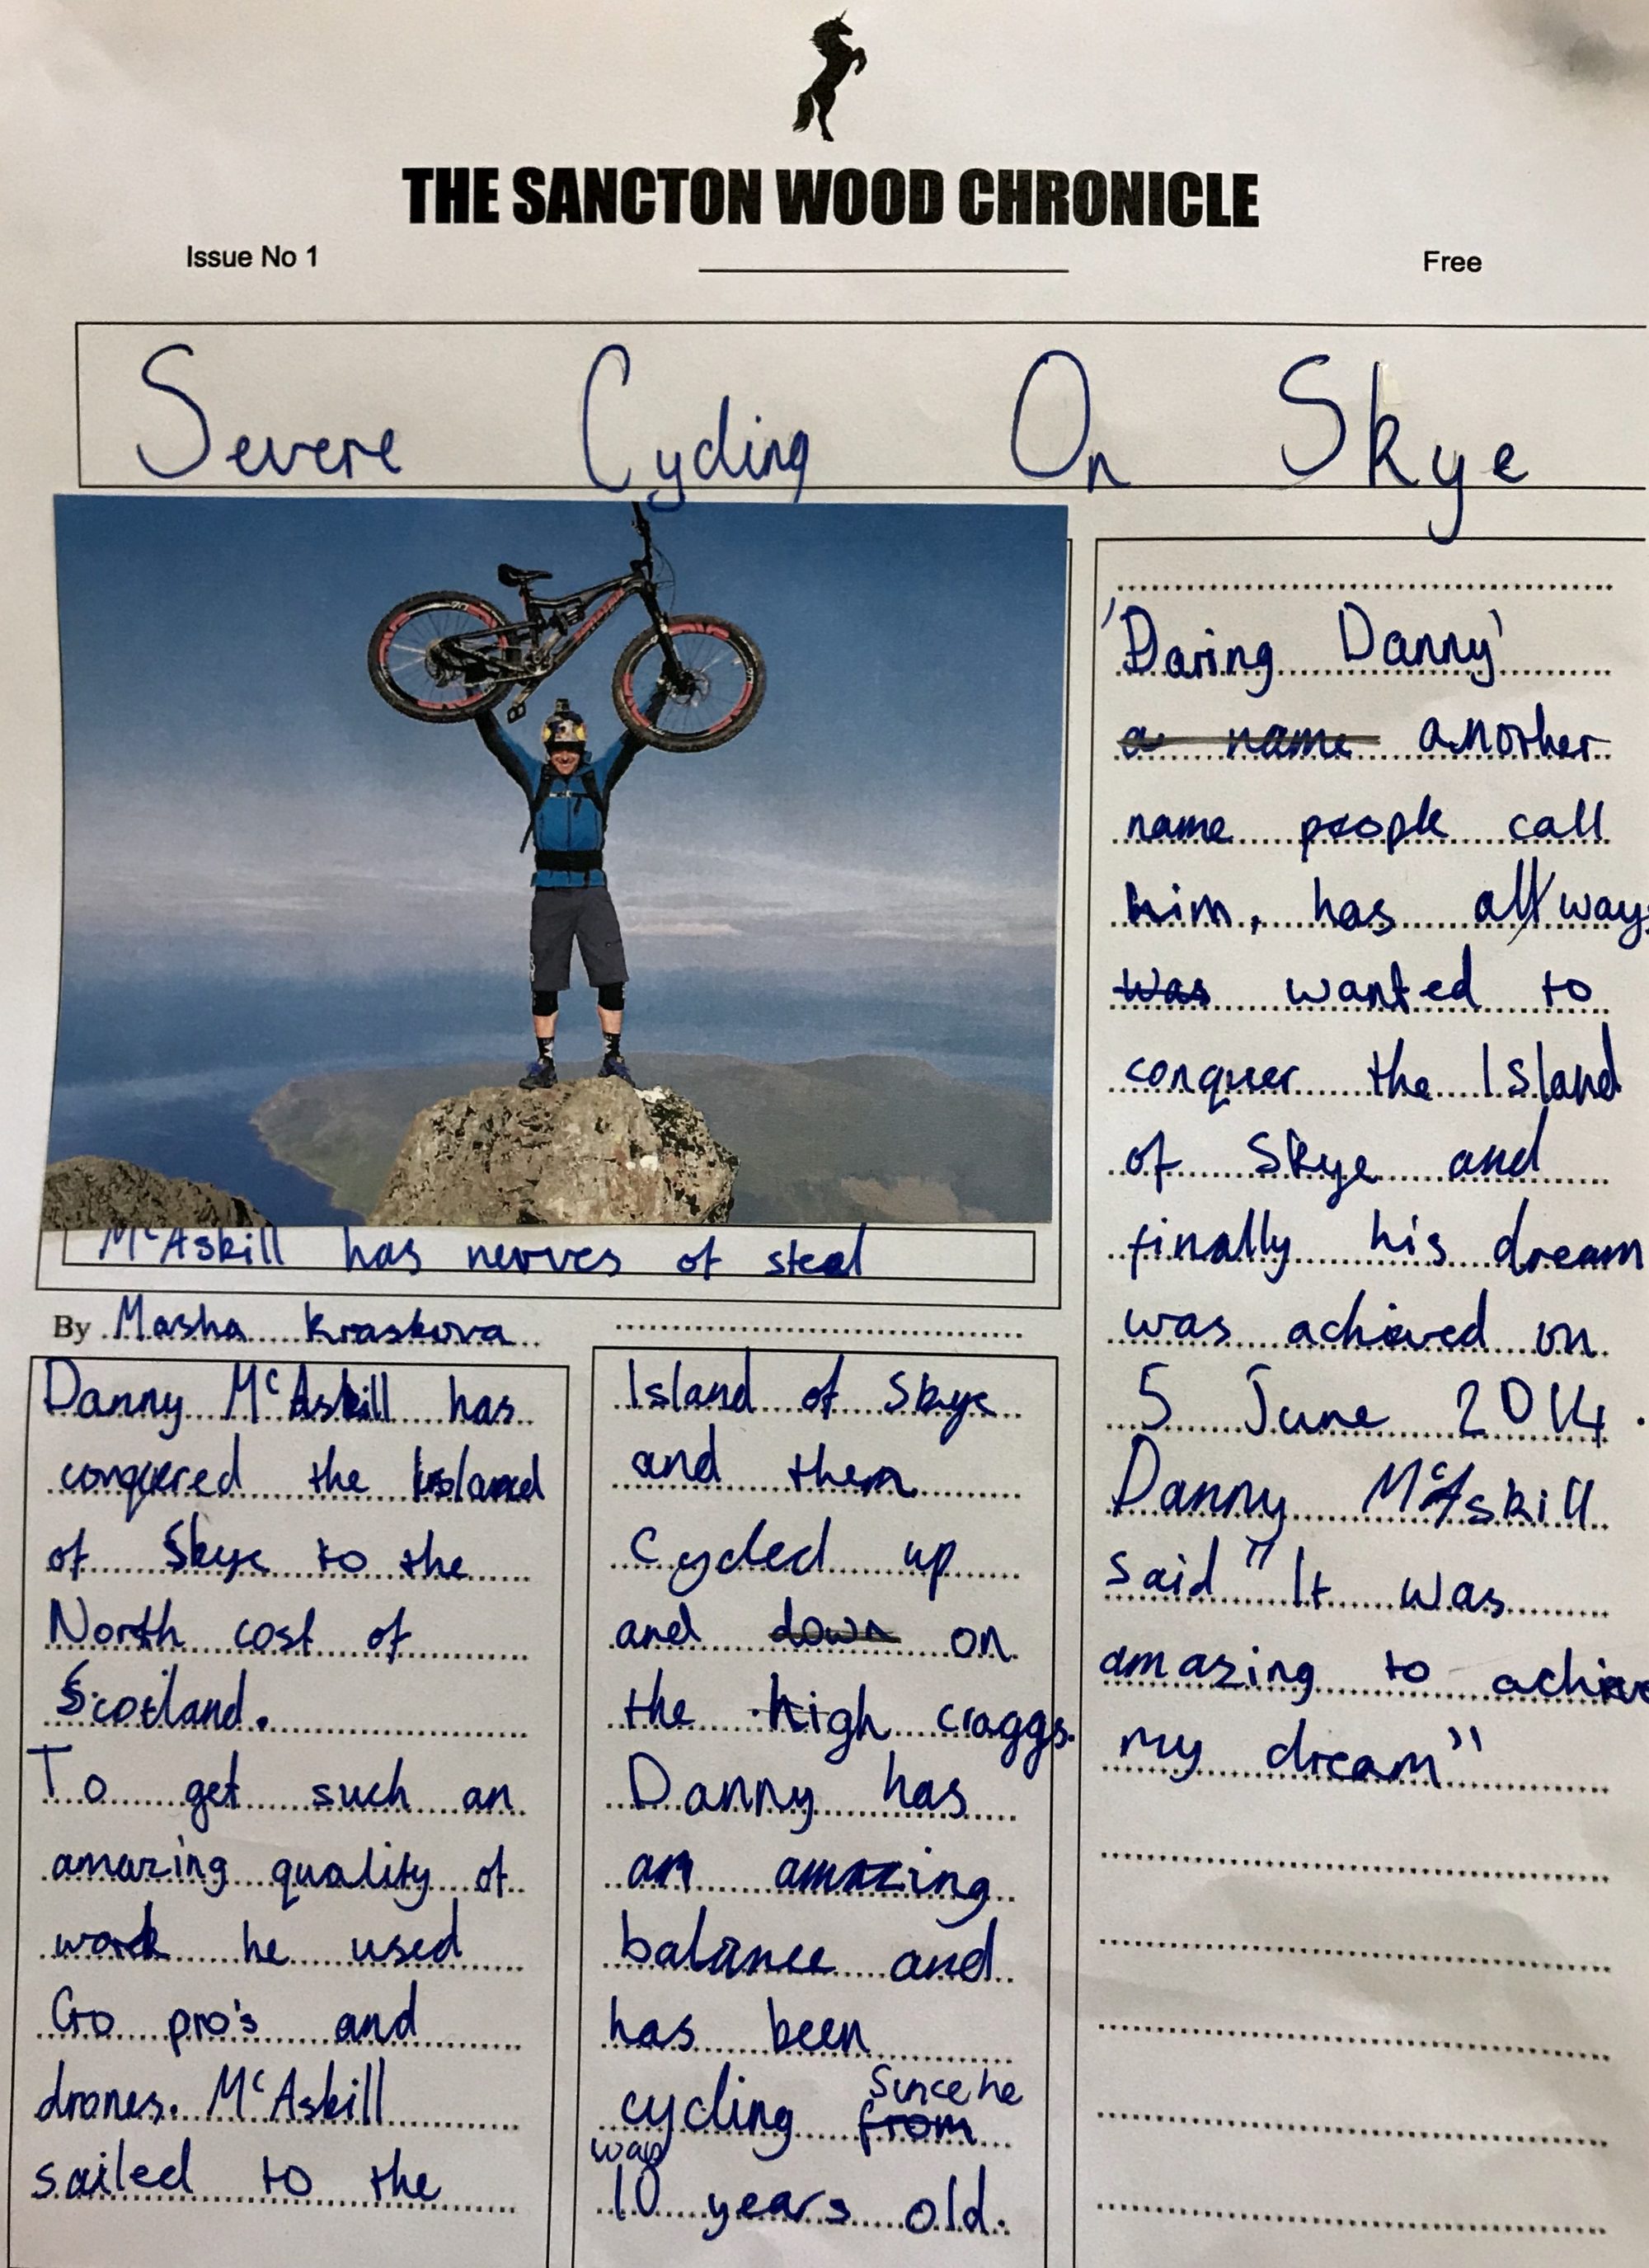 THE SANCTON WOOD CHRONICLE
Issue No 1
Free
Severe Cycling On Skye
McAskill has nerves of steel
By Masha Kraskova
Danny McAskill has
conquered the Island
of Skye to the
North cost of
Scotland.
To get such an
amazing quality of
work he used
Go pro's and
drones. McAskill
sailed to the
Island of Skye
and then
Cycled up
and down on
the high craggs.
Danny has
an amazing
balance and
has been
cycling from since he
was
10 years old.
'Daring Danny'
a name another
name people call
him, has always
was wanted to
conquer the Island
of Skye and
finally his dream
was achieved on
5 June 2014.
Danny McAskill
said "It was
amazing to achieve
my dream"